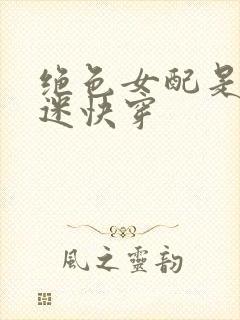 绝色女配是
迷快穿
風之靈韵